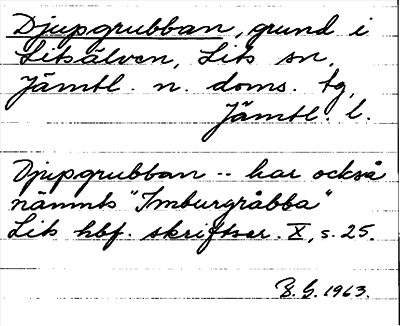 Djupgrubban, grund i
Litsälven, Lits sn,
Jämtl. n. doms. tg,
Jämtl. l.
Djupgrubban -- har också
nämnts "Imburgråbba"
Lits hbf. skriftser. X, s. 25.
B. G. 1963.